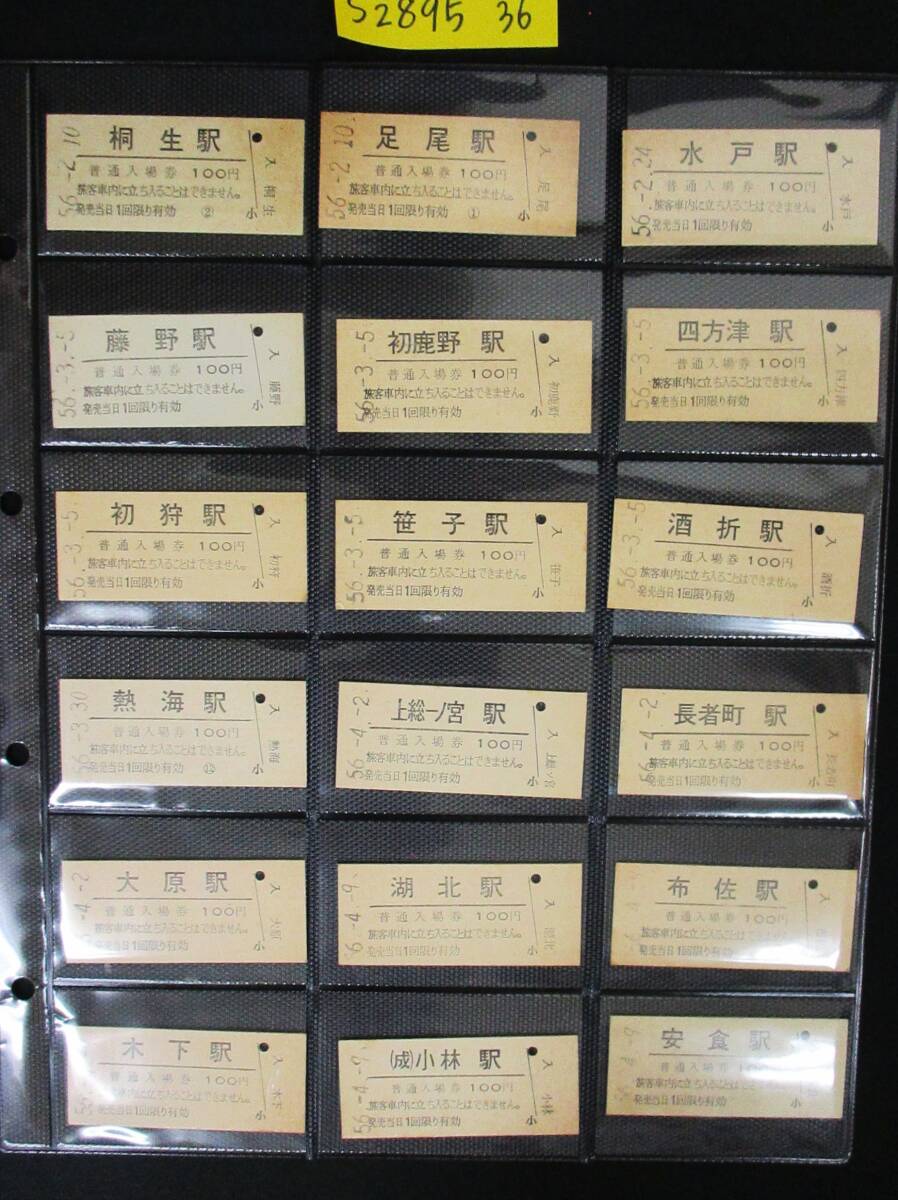 S2895 36
56-2 10
桐生駅
普通入場券 100円
旅客車内に立ち入ることはできません。
発売当日1回限り有効 ②
入 桐生
小
56-2 10.
足尾駅
普通入場券 100円
旅客車内に立ち入ることはできません。
発売当日1回限り有効 ①
入 足尾
小
56-2.24
水戸駅
普通入場券 100円
旅客車内に立ち入ることはできません。
発売当日1回限り有効
入 水戸
小
56.-3.-5
藤野駅
普通入場券 100円
旅客車内に立ち入ることはできません。
発売当日1回限り有効
入 藤野
小
56-3.-5
初鹿野駅
普通入場券 100円
旅客車内に立ち入ることはできません。
発売当日1回限り有効
入 初鹿野
小
56.-3.-5
四方津駅
普通入場券 100円
旅客車内に立ち入ることはできません。
発売当日1回限り有効
入 四方津
小
56-3.-5
初狩駅
普通入場券 100円
旅客車内に立ち入ることはできません。
発売当日1回限り有効
入 初狩
小
56.-3.-5
笹子駅
普通入場券 100円
旅客車内に立ち入ることはできません。
発売当日1回限り有効
入 笹子
小
56-3.-5
酒折駅
普通入場券 100円
旅客車内に立ち入ることはできません。
発売当日1回限り有効
入 酒折
小
56-3.30
熱海駅
普通入場券 100円
旅客車内に立ち入ることはできません。
発売当日1回限り有効
入 熱海
小
56-4.-2
上総一ノ宮駅
普通入場券 100円
旅客車内に立ち入ることはできません。
発売当日1回限り有効
入 上総一ノ宮
小
56-4.-2
長者町駅
普通入場券 100円
旅客車内に立ち入ることはできません。
発売当日1回限り有効
入 長者町
小
-4.-2
大原駅
普通入場券 100円
旅客車内に立ち入ることはできません。
発売当日1回限り有効
入 大原
小
56-4.-9
湖北駅
普通入場券 100円
旅客車内に立ち入ることはできません。
発売当日1回限り有効
入 湖北
小
布佐駅
普通入場券 100円
旅客車内に立ち入ることはできません。
発売当日1回限り有効
入
小
木下駅
普通入場券 100円
旅客車内に立ち入ることはできません。
発売当日1回限り有効
入 木下
小
56-4.-9
(成)小林駅
普通入場券 100円
旅客車内に立ち入ることはできません。
発売当日1回限り有効
入 小林
小
-4.-9
安食駅
普通入場券 100円
旅客車内に立ち入ることはできません。
発売当日1回限り有効
小